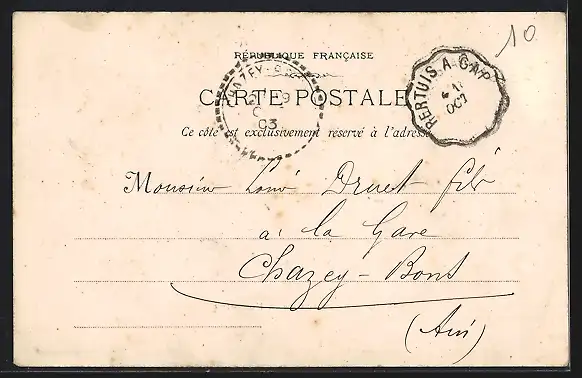 10
RÉPUBLIQUE FRANÇAISE
CARTE POSTALE
Ce côté est exclusivement réservé à l'adresse
PERTUIS A GAP
OCT
03
Monsieur Louis Druet fils
à la Gare
Chazey-Bons
(Ain)